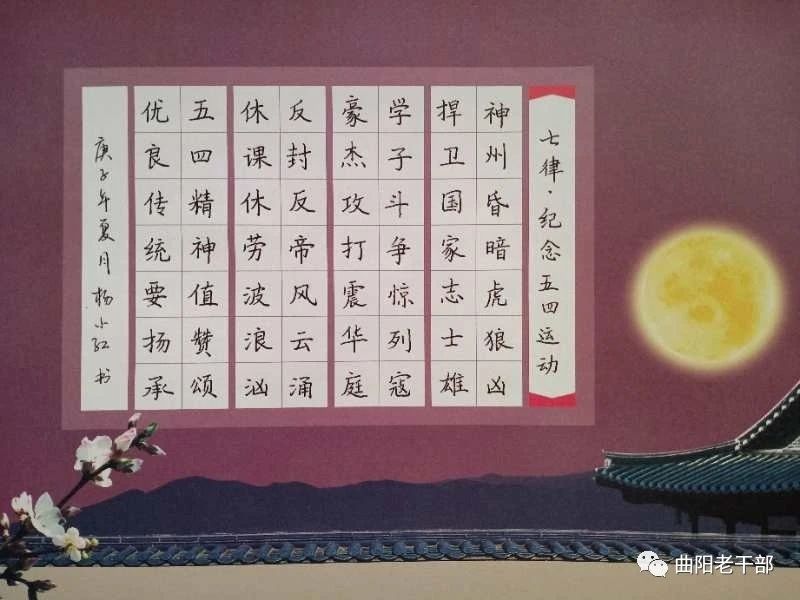 七律·纪念五四运动
神州昏暗虎狼凶
捍卫国家志士雄
学子斗争惊列寇
豪杰攻打震华庭
反封反帝风云涌
休课休劳波浪汹
五四精神值赞颂
优良传统要扬承
庚子年夏月杨小红书
曲阳老干部